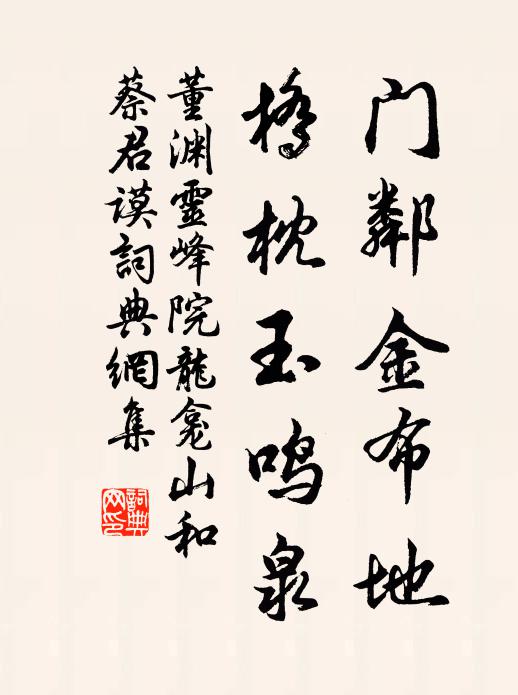 门鄰金布地
橋枕玉鳴泉
董渊靈峰院龍龛山和
蔡君谟詞典網集
詞典网印